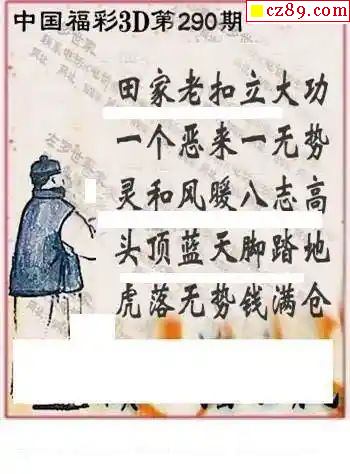 cz89.com
中国福彩3D第290期
田家老扣立大功
一个恶来一无势
灵和风暖八志高
头顶蓝天脚踏地
虎落无势钱满仓